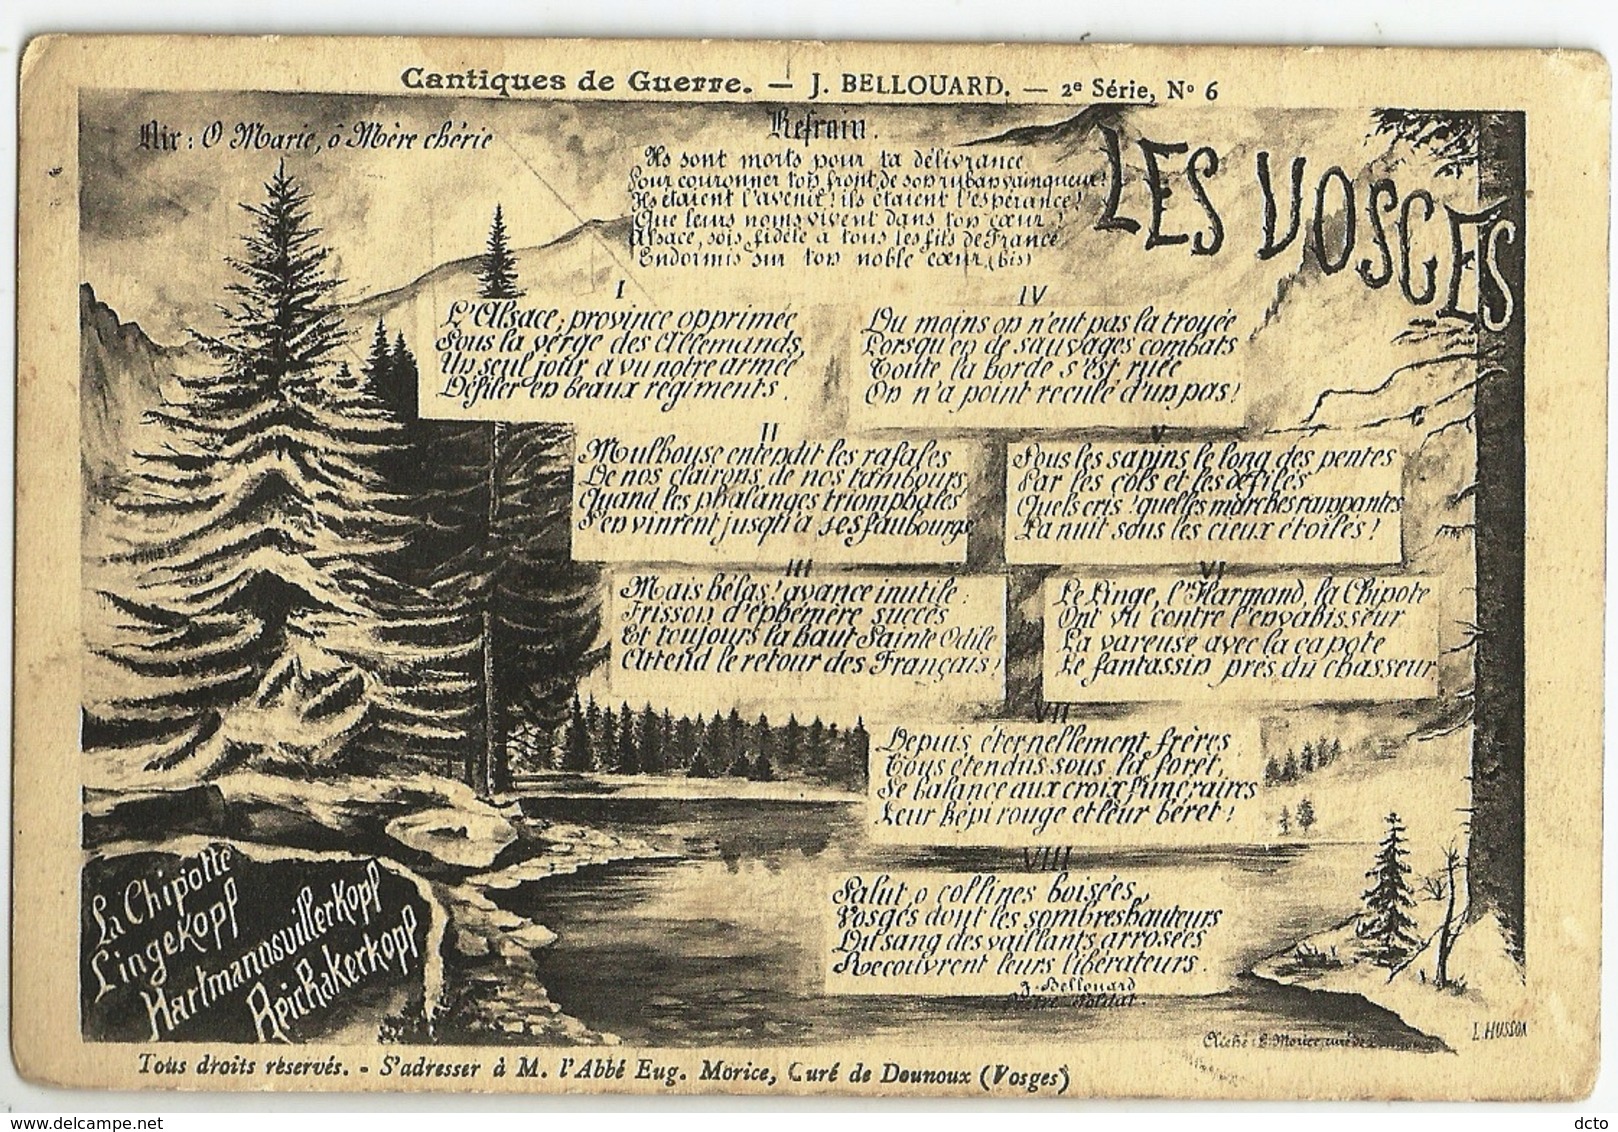 Cantiques de Guerre. — J. BELLOUARD. — 2e Série, No 6
Air : O Marie, ô Mère chérie
LES VOSGES
Refrain.
Ils sont morts pour ta délivrance
Pour couronner ton front de son ruban vainqueur!
Ils étaient l'avenir! ils étaient l'espérance!
Que leurs noms vivent dans ton cœur!
Alsace, sois fidèle à tous les fils de France
Endormis sur ton noble cœur (bis)
I
L'Alsace; province opprimée
Sous la verge des Allemands,
Un seul jour a vu notre armée
Défiler en beaux régiments.
II
Mulhouse entendit les rafales
De nos clairons, de nos tambours,
Quand les phalanges triomphales
S'en vinrent jusqu'à ses faubourgs
III
Mais hélas! avance inutile:
Frisson d'éphémère succès
Et toujours la haut Sainte Odile
Attend le retour des Français!
IV
Du moins on n'eut pas la trouée
Lorsqu'en de sauvages combats
Toute la horde s'est ruée
On n'a point reculé d'un pas!
V
Sous les sapins le long des pentes
Par les cols et les défilés
Quels cris! quelles marches rampantes
La nuit sous les cieux étoilés!
VI
Le Linge, l'Harmand, la Chipote
Ont vu contre l'envahisseur
La vareuse avec la capote
Le fantassin près du chasseur.
VII
Depuis éternellement frères
Tous étendus sous la forêt,
Se balance aux croix funéraires
Leur képi rouge et leur béret!
VIII
Salut, o collines boisées,
Vosges dont les sombres hauteurs
Du sang des vaillants arrosées
Recouvrent leurs libérateurs.
J. Bellouard
Prêtre Soldat.
La Chipotte
Lingekopf
Hartmannsvillerkopf
Reichakerkopf
Cliché: E. Morice, curé de
L. HUSSON
Tous droits réservés. - S'adresser à M. l'Abbé Eug. Morice, Curé de Dounoux (Vosges)
www.delcampe.net
dcto